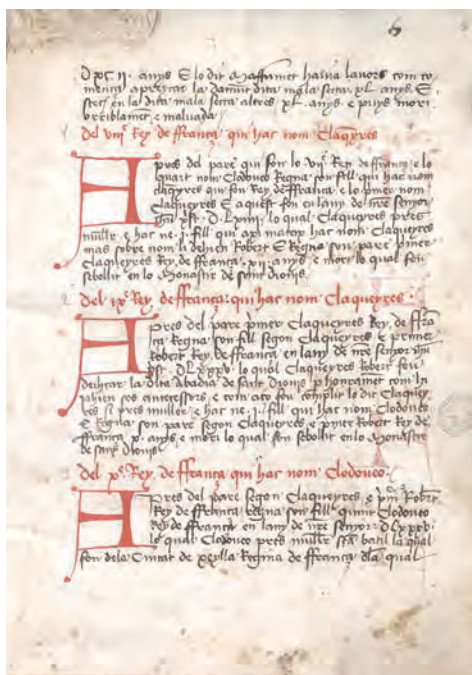 6
D xc ii · anys E lo dit Mahffumet havia lavors com co
mença a preycar la dampnat dita mala secta xl anys E
stech en la dita mala secta altres xl anys e puys mori
orriblament e malvada
Del viij Rey de ffrança qui hac nom Claqyres
Apres del pare qui fon lo vij Rey de ffrança e lo
quart nom Clodoveo Regna son fill qui hac nom
claqyres qui fon Rey de ffrança e lo primer nom
Claqueyres E aquest fon en lany de nre senyor
D · Lxiiij · lo qual Claqueyres pres
muller e hac ne · j · fill qui axi mateix hac nom Claqueyres
mas sobre nom la dehien Robert E Regna son pare primer
Claqueyres Rey de ffrança xij · anys e mori lo qual fon
sebollit en lo Monastir de sant dionis
Del ix Rey de ffrança qui hac nom Claqueyres
Apres del pare primer Claqueyres Rey de ffrā
ça Regna son fill segon Claqueyres e primer
Robert Rey de ffrança en lany de nre senyor
D Lxxxv lo qual Claqueyres Robert feu
la dita Abadia de sant Dionis p honrament com
jahien sos antecessors e com aço fou complit lo dit Claquey
res si pres muller e hac ne · j · fill qui hac nom Clodoveo
E Regna son pare segon Claqueyres e primer Robert Rey de
ffrança x anys e mori lo qual fon sebollit en lo Monastir
de sant dionis
Del x Rey de ffrança qui hac nom Clodoveo
Apres del pare segon Claqueyres e prim Robert
Rey de ffrança regna son fill quint Clodoveo
Rey de ffrança en lany de nre senyor D Lxxxv
lo qual Clodoveo pres muller batil la qual
fon dela Ciutat de Regina de ffrança dla qual